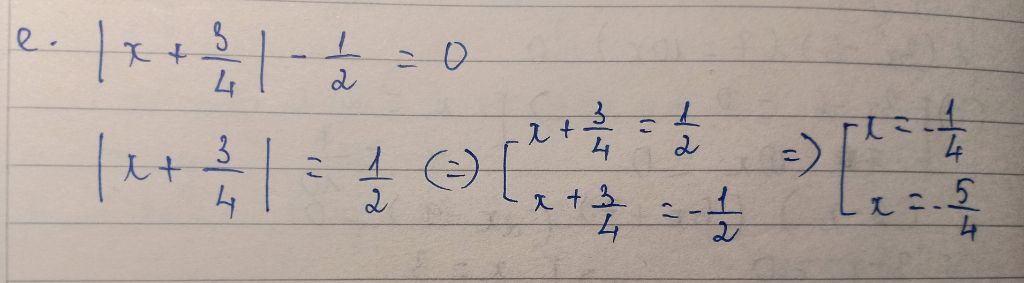 e. |x + 3/4| - 1/2 = 0
|x + 3/4| = 1/2 (=) [x + 3/4 = 1/2 =) [x = -1/4
x + 3/4 = -1/2 x = -5/4